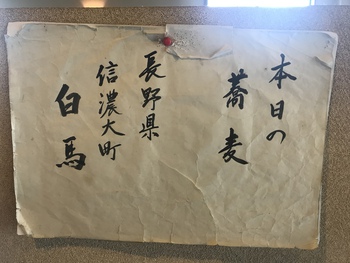 本日の
蕎麦
長野県
信濃大町
白馬